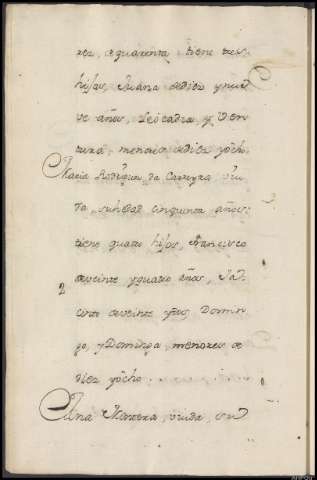 rez, de quarenta tiene tres
hijos, Juana de diez y nue
ve años, Leocadia y Ven
tura, menores de diez y ocho.
Maria Rodriguez da Carreyra viu
da, su hedad cinquenta años:
tiene quatro hijos, Francisco
de veinte y quatro años, Ja
cinto de veinte y tres, Domin
2
go, y Dominga, menores de
diez y ocho.
Ana viuda, su